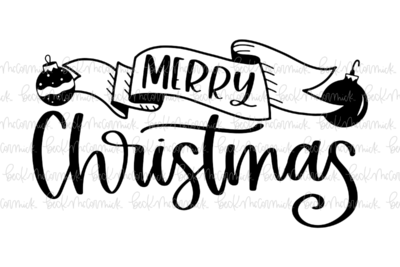 MERRY
Christmas